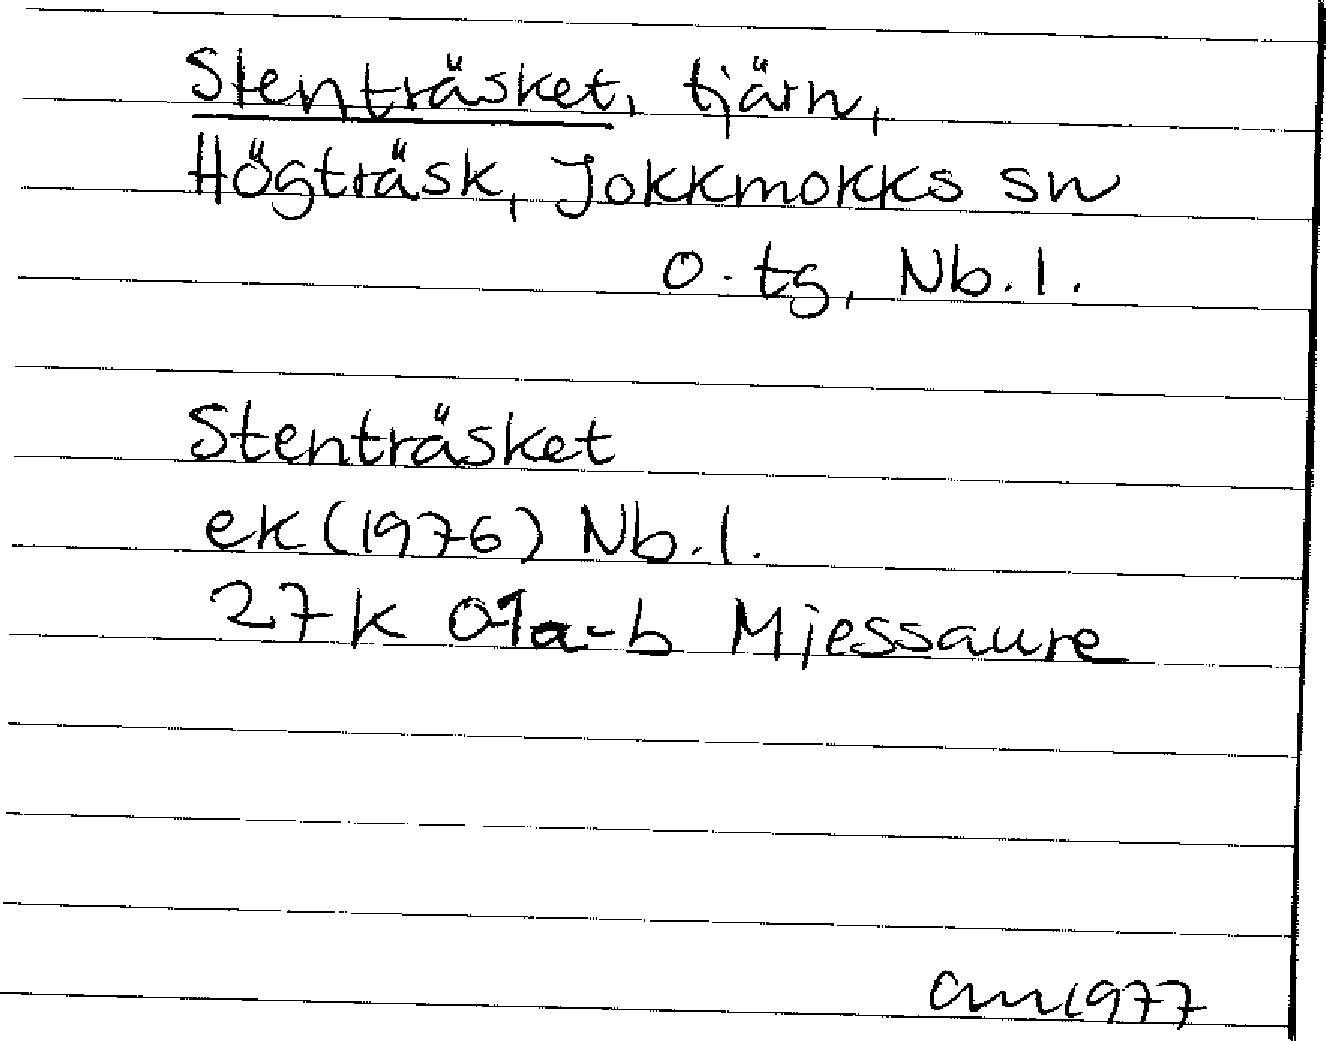 Stenträsket, tjärn,
Högträsk, Jokkmokks sn
o. tg, Nb. l.
Stenträsket
ek (1976) Nb. l.
27K 01a-b Mjessaure
1977